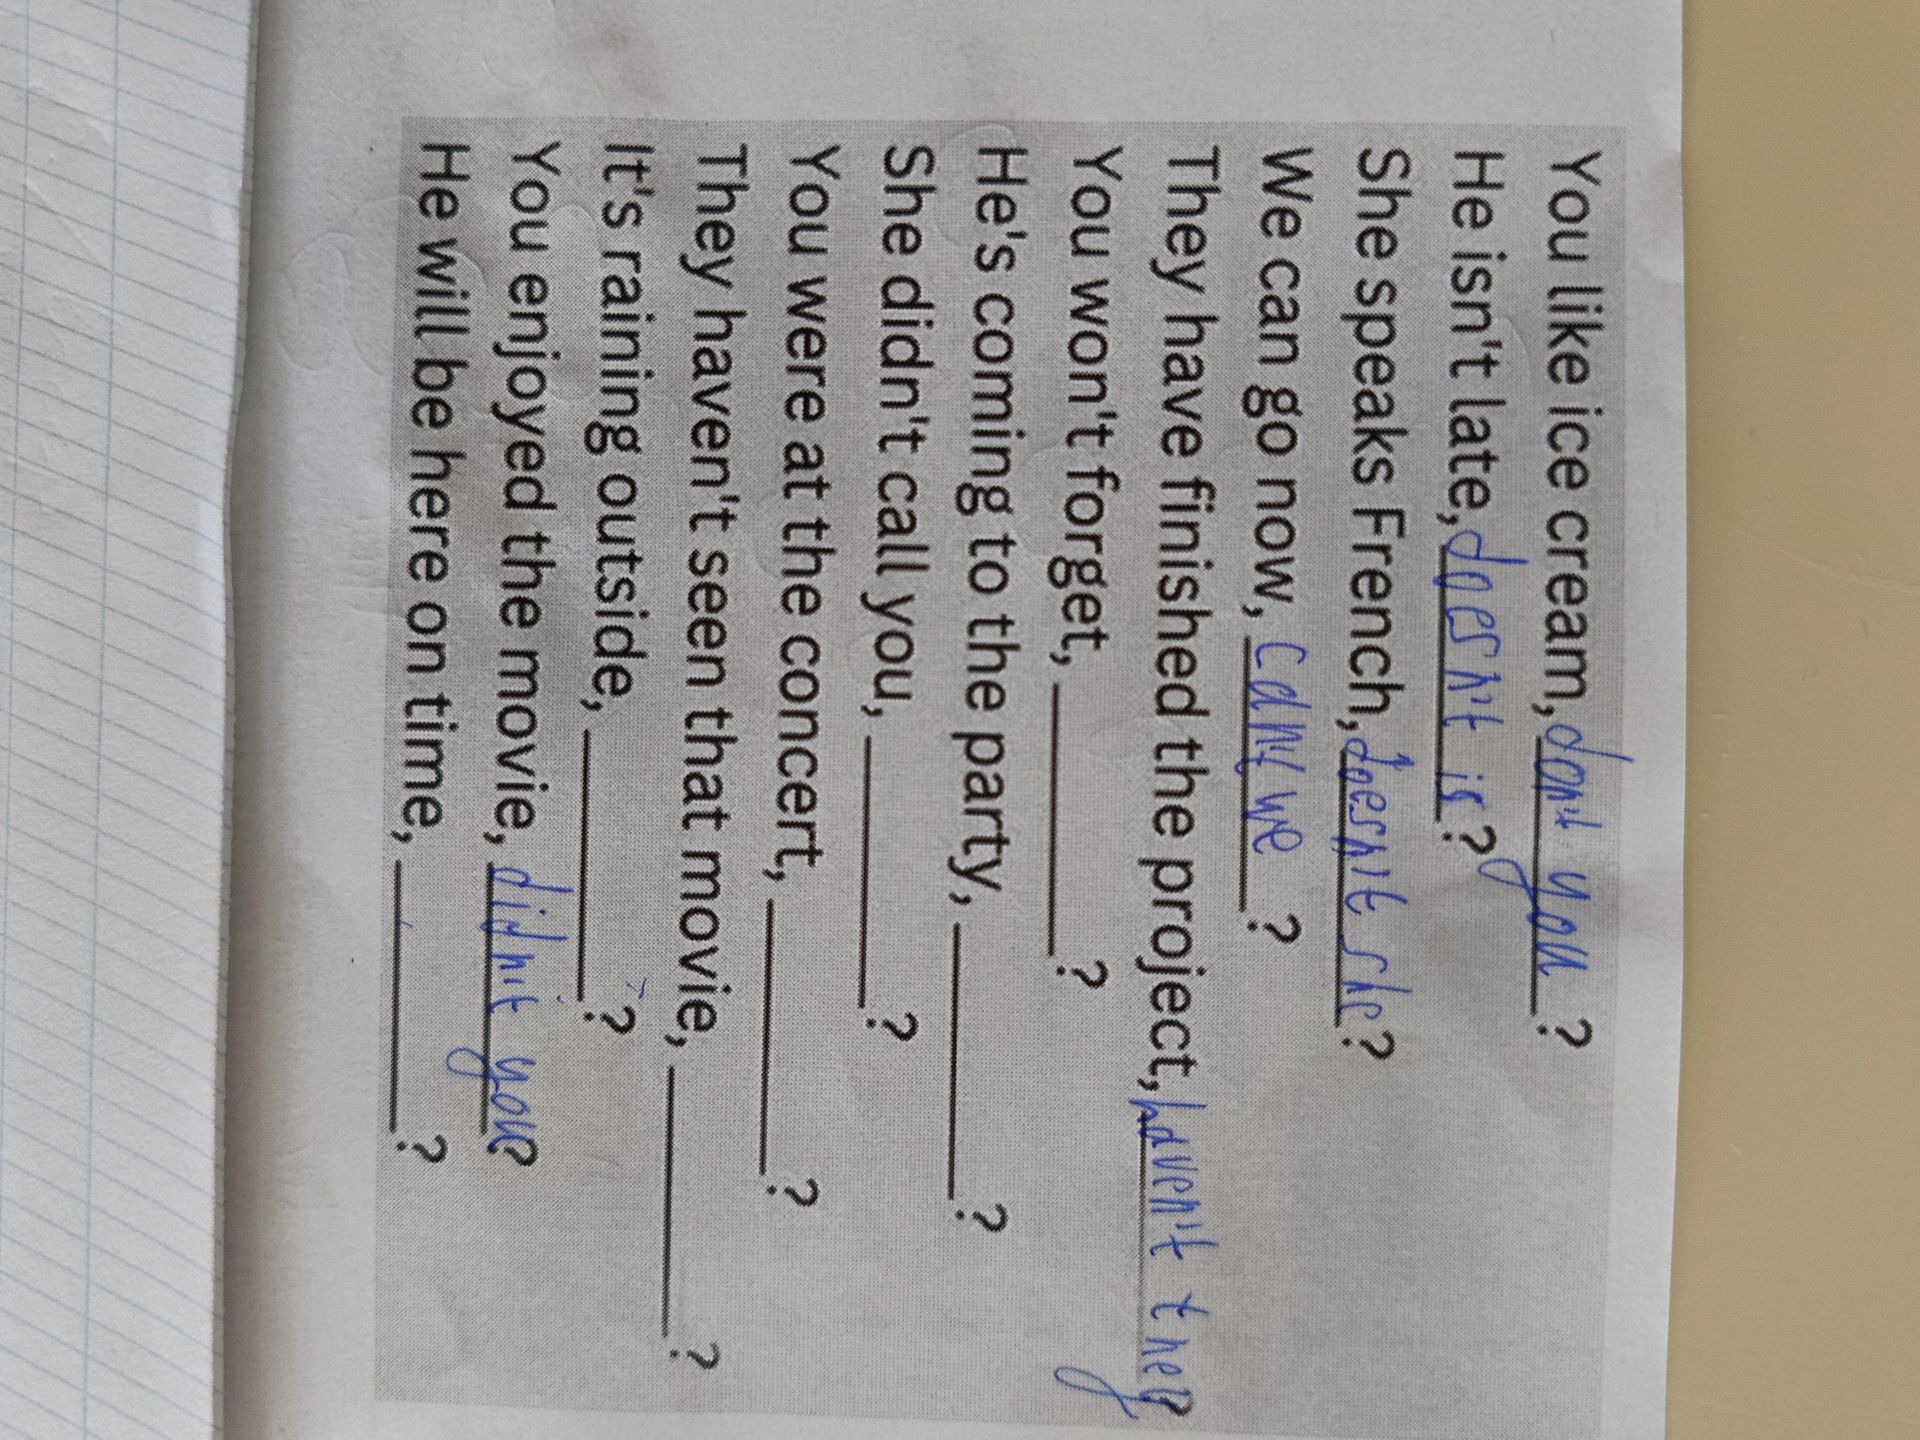 You like ice cream, don't you ?
He isn't late, doesn't is ?
She speaks French, doesn't she ?
We can go now, can't we ?
They have finished the project, haven't they ?
You won't forget, ________ ?
He's coming to the party, ________ ?
She didn't call you, ________ ?
You were at the concert, ________ ?
They haven't seen that movie, ________ ?
It's raining outside, ________ ?
You enjoyed the movie, didn't you ?
He will be here on time, ________ ?